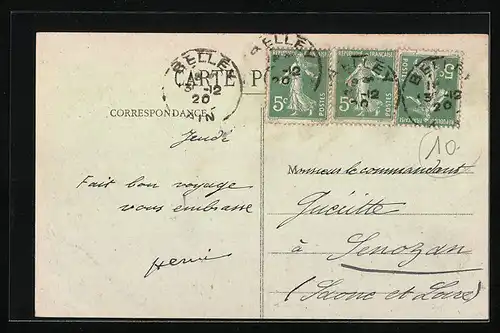 BELLEY
5-12
20
AIN
CARTE PO
BELLEY
12
20
5c
POSTES
BELLEY
5c
POSTES
12
5c
CORRESPONDANCE
10
Jeudi
Monsieur le commandant
Fait bon voyage
vous embrasse
Guéritte
à Senozan
Henri
(Saone et Loire)